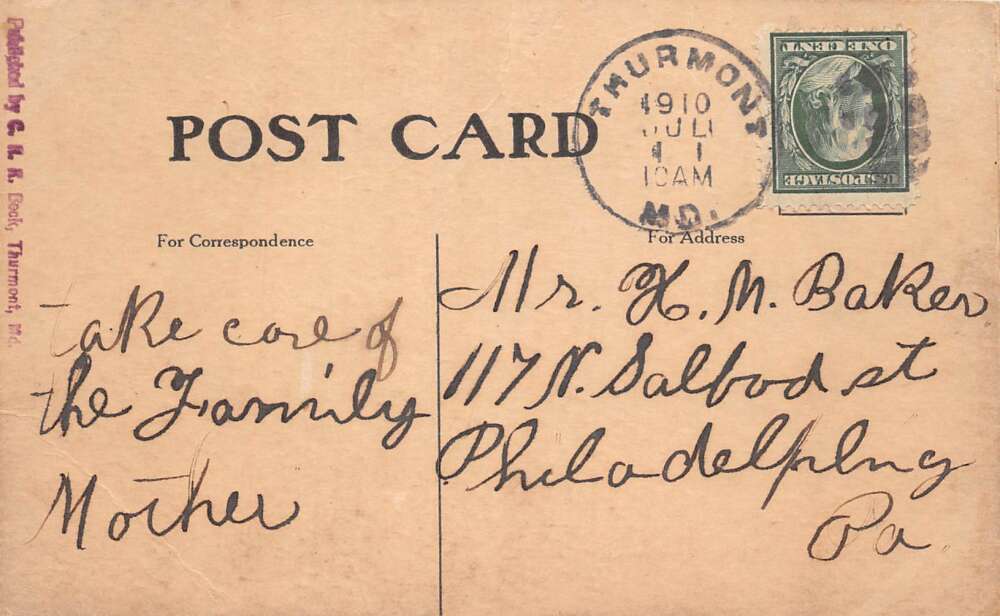 Published by C. H. R. Beck, Thurmont, Md.
POST CARD
THURMONT
1910
JUL
11
10AM
MD.
ONE CENT
U.S.POSTAGE
For Correspondence
For Address
take care of
the Family
Mother
Mr. H. M. Baker
117 N. Salford st
Philadelphny
Pa